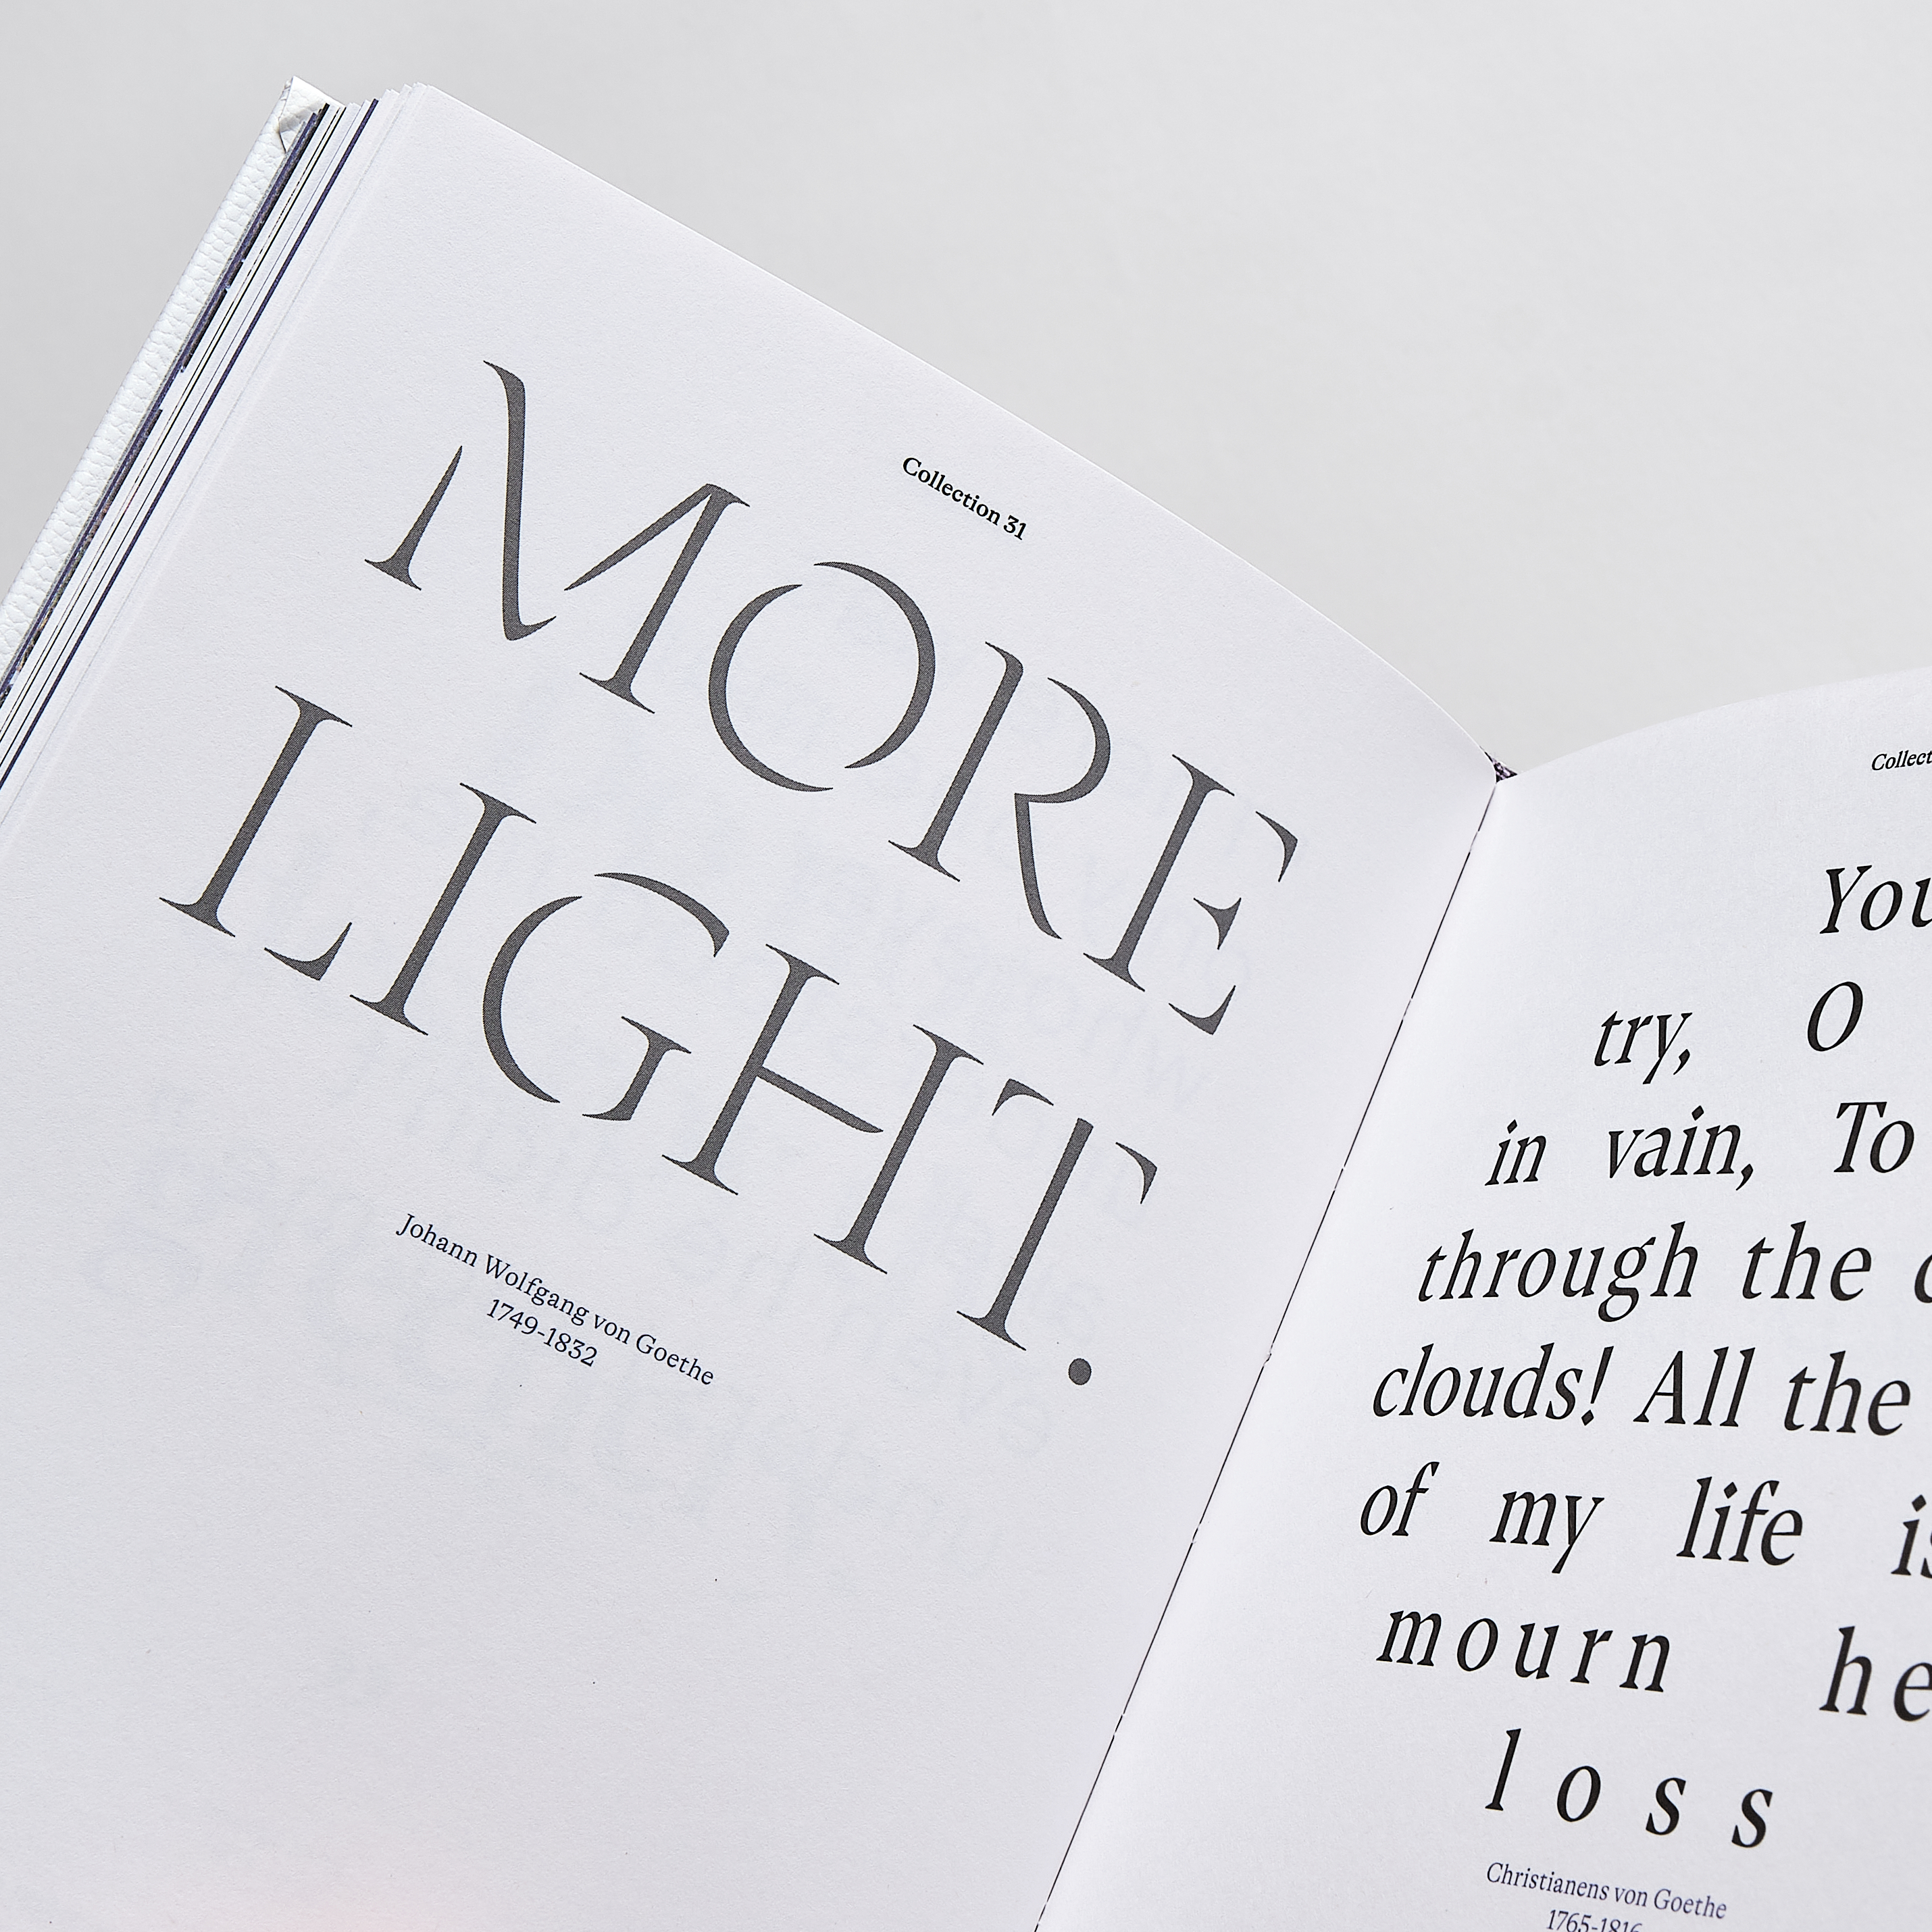 Collection 31
MORE
LIGHT.
Johann Wolfgang von Goethe
1749-1832
try, O
in vain, To
through the
clouds! All the
of my life
mourn
loss
Christianens von Goethe
1765-1816